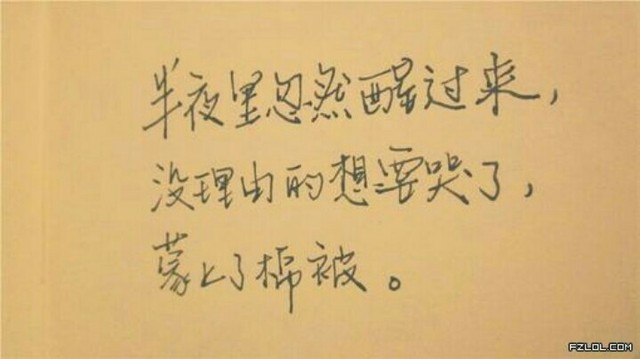 半夜里忽然醒过来，
没理由的想要哭了，
蒙上了棉被。
FZLOL.COM